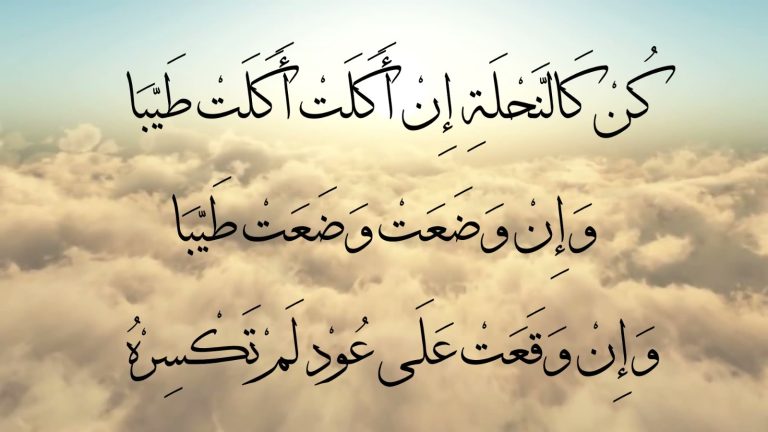 كُنْ كَالنَّحْلَةِ إِنْ أَكَلَتْ أَكَلَتْ طَيِّبَا
وَإِنْ وَضَعَتْ وَضَعَتْ طَيِّبَا
وَإِنْ وَقَعَتْ عَلَى عُوْدِ لَمْ تَكْسِرْهُ